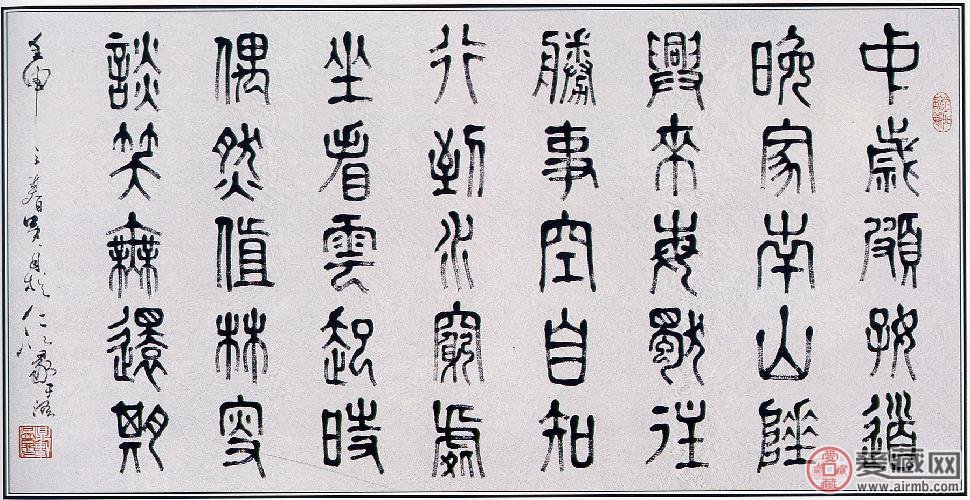 中歲頗好道
晚家南山陲
興來每獨往
勝事空自知
行到水窮處
坐看雲起時
偶然值林叟
談笑無還期
壬申之春
爱藏网
www.airmb.com